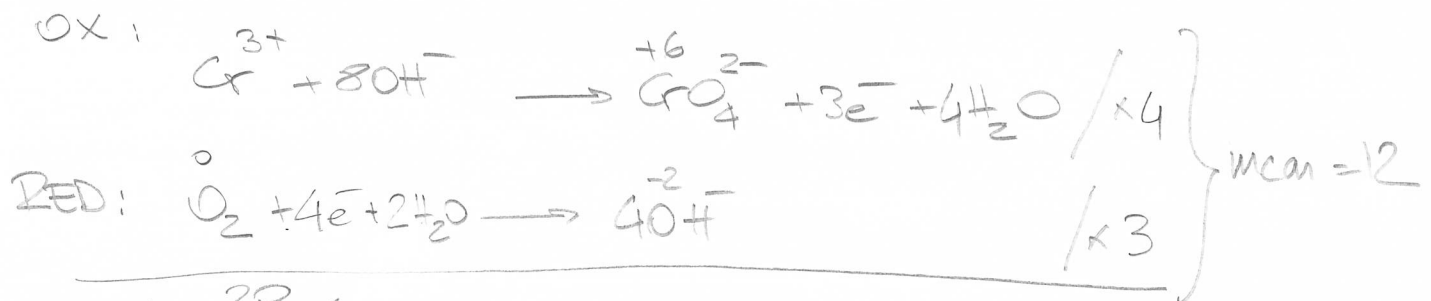 OX:
Cr³⁺ + 8OH⁻ ⟶ +6 CrO₄²⁻ + 3e⁻ + 4H₂O / ×4
RED: 0 O₂ + 4e⁻ + 2H₂O ⟶ -2 4OH⁻ / ×3
= 12